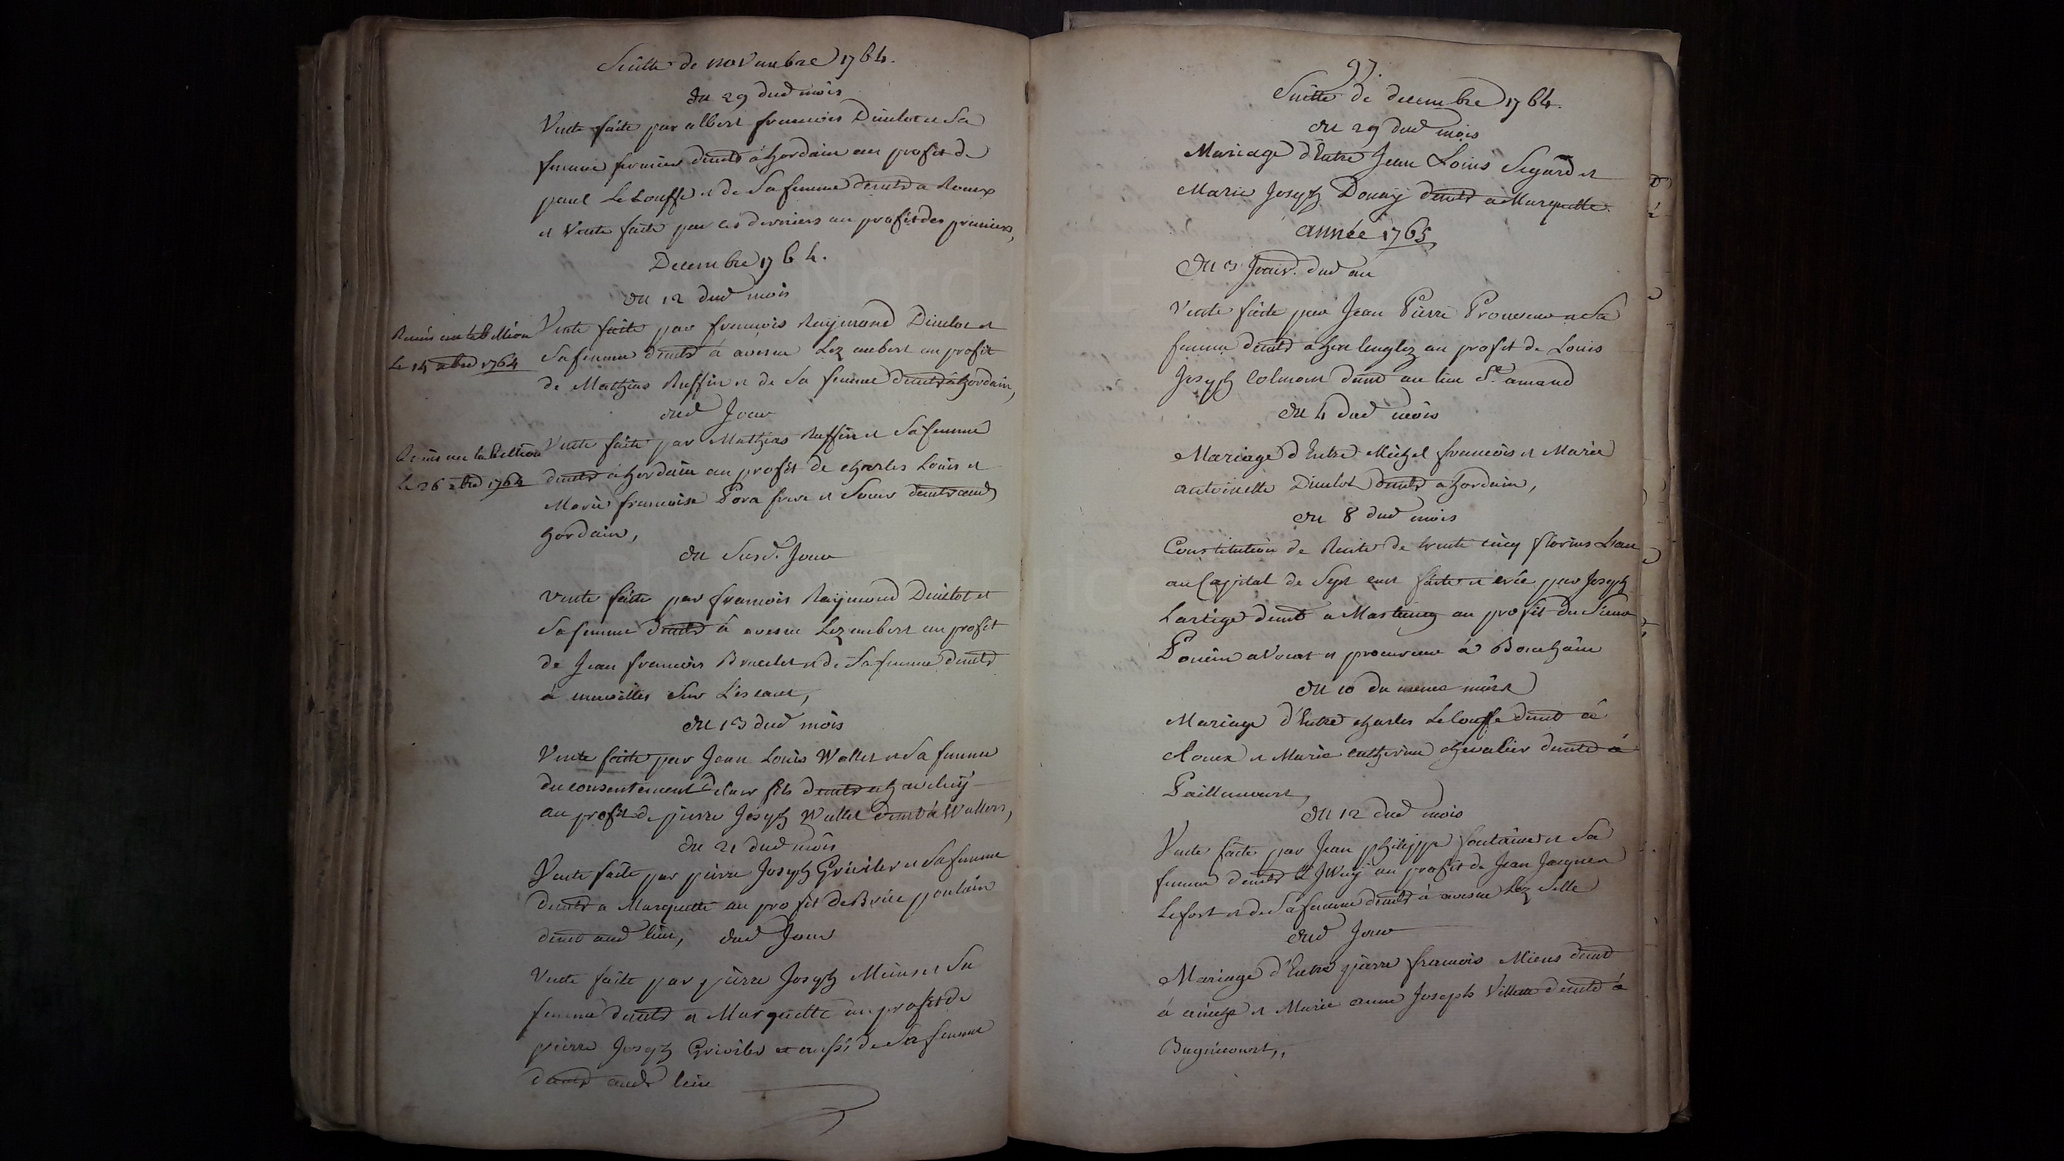 Suitte de novembre 1764.
Du 29 dud mois
Vente faite par albert francois Dimlot et Sa
femme fermiers demts a hordain au profit de
paul Le Louffe et de Sa femme demts a Roeux
et Vente faite par ces derniers au profit des premiers,
Decembre 1764.
Du 12 dud mois
Remis au tabellion
Le 14 xbre 1764
Vente faite par francois Raymond Dimlot et
Sa femme demts à avesne Lez aubert au profit
de Mathias Ruffin et de Sa femme demts a hordain,
dud Jour
Remis au tabellion
Le 26 xbre 1764
Vente faite par Mathias Ruffin et Sa femme
demts à hordain au profit de charles Louis et
Marie francoise Pora frere et Soeur demts aud
hordain,
Du Susd. Jour
Vente faite par francois Raymond Dimlot et
Sa femme demts à avesne Lez aubert au profit
de Jean francois Bracelet et de Sa femme demts
à neuvilles Sur L'escaut,
Du 13 dud mois
Vente faite par Jean Louis Wallet et Sa femme
du consentement de leur fils demts a haveluy
au profit de pierre Joseph Wallet demt à Wallers,
Du 21 dud mois
Vente faite par pierre Joseph Griviler et Sa femme
demts a Marquette au profit de Brice poulain
demt aud lieu, dud Jour
Vente faite par pierre Joseph Miens et Sa
femme demts a Marquette au profit de
pierre Joseph Griviler et aussi de Sa femme
demts aud lieu
97.
Suitte de decembre 1764.
Du 29 dud mois
Mariage d'Entre Jean Louis Segard et
Marie Joseph Douay demts a Marquette.
année 1765
Du 3 Janv. dud an
Vente faite par Jean Pierre Prouveur et Sa
femme demts a here lenglez au profit de Louis
Joseph Colmont demt au lieu St amand
Du 4 dud mois
Mariage d'Entre Michel francois et Marie
antoinette Dimlot demts a hordain,
Du 8 dud mois
Constitution de Rente de trente cinq florins L'an
au Capital de Sept cent faite et crée par Joseph
Lartige demt a Mastaing au profit du Sieur
Pouein avocat et procureur à Bouchain
Du 10 du meme mois
Mariage d'Entre charles Le Louffe demt à
Roeux et Marie catherine chevalier demte à
Paillencourt,
Du 12 dud mois
Vente faite par Jean philippe fontaine et Sa
femme demts à Jwuy au profit de Jean Jacques
Lefort et de Sa femme demts à avesne Lez Selle
dud Jour
Mariage d'Entre pierre francois Miens demt
à et Marie anne Joseph Villette demte à
Bugnicourt,,